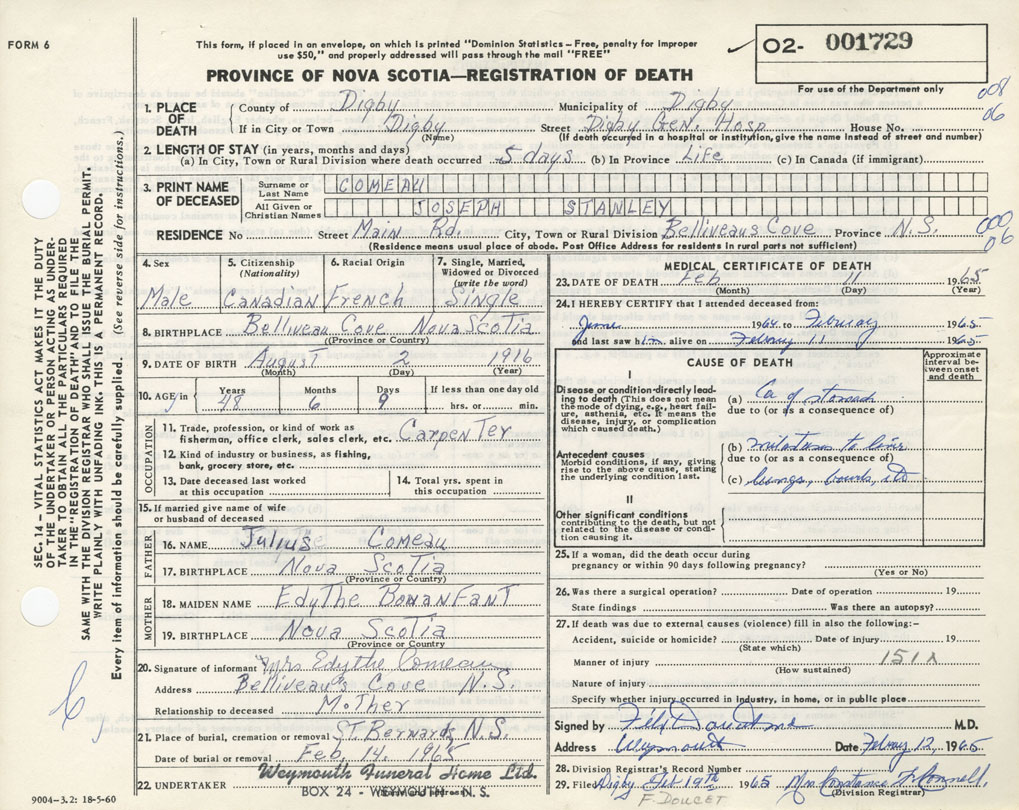 FORM 6
This form, if placed in an envelope, on which is printed "Dominion Statistics – Free, penalty for improper
use $50," and properly addressed will pass through the mail "FREE"
O2- 001729
For use of the Department only
008
06
PROVINCE OF NOVA SCOTIA—REGISTRATION OF DEATH
1. PLACE OF DEATH County of Digby Municipality of Digby
If in City or Town Digby Street Digby Gen. Hosp House No.
(Name) (If death occurred in a hospital or institution, give the name instead of street and number)
2. LENGTH OF STAY (in years, months and days)
(a) In City, Town or Rural Division where death occurred 5 days (b) In Province Life (c) In Canada (if immigrant)
3. PRINT NAME OF DECEASED
Surname or Last Name COMEAU
All Given or Christian Names JOSEPH STANLEY
RESIDENCE No Street Main Rd. City, Town or Rural Division Belliveaus Cove Province N.S.
(Residence means usual place of abode. Post Office Address for residents in rural parts not sufficient)
000
06
SEC. 14 – VITAL STATISTICS ACT MAKES IT THE DUTY
OF THE UNDERTAKER OR PERSON ACTING AS UNDER-
TAKER TO OBTAIN ALL THE PARTICULARS REQUIRED
IN THE "REGISTRATION OF DEATH" AND TO FILE THE
SAME WITH THE DIVISION REGISTRAR WHO SHALL ISSUE THE BURIAL PERMIT.
WRITE PLAINLY WITH UNFADING INK. THIS IS A PERMANENT RECORD.
Every item of information should be carefully supplied. (See reverse side for instructions.)
4. Sex 5. Citizenship (Nationality) 6. Racial Origin 7. Single, Married, Widowed or Divorced (write the word)
Male Canadian French Single
8. BIRTHPLACE Belliveau Cove Nova Scotia
(Province or Country)
9. DATE OF BIRTH August 2 1916
(Month) (Day) (Year)
10. AGE in Years Months Days If less than one day old
48 6 9 hrs. or min.
OCCUPATION
11. Trade, profession, or kind of work as
fisherman, office clerk, sales clerk, etc. Carpenter
12. Kind of industry or business, as fishing,
bank, grocery store, etc.
13. Date deceased last worked
at this occupation
14. Total yrs. spent in
this occupation
15. If married give name of wife
or husband of deceased
FATHER
16. NAME Julius Comeau
17. BIRTHPLACE Nova Scotia
(Province or Country)
MOTHER
18. MAIDEN NAME Edythe Bonanfant
19. BIRTHPLACE Nova Scotia
(Province or Country)
20. Signature of informant Mrs Edythe Comeau
Address Belliveau's Cove N.S.
Relationship to deceased Mother
21. Place of burial, cremation or removal St. Bernards N.S.
Date of burial or removal Feb. 14. 1965
22. UNDERTAKER Weymouth Funeral Home Ltd.
BOX 24 - WEYMOUTH N. S.
9004-3.2: 18-5-60
MEDICAL CERTIFICATE OF DEATH
23. DATE OF DEATH Feb 11 1965
(Month) (Day) (Year)
24. I HEREBY CERTIFY that I attended deceased from:
June 1964 to February 1965
and last saw him alive on February 11 1965
CAUSE OF DEATH
Approximate interval between onset and death
I
Disease or condition directly leading to death (This does not mean
the mode of dying, e.g., heart failure, asthenia, etc. It means the
disease, injury, or complication
which caused death.)
(a) Ca of stomach
due to (or as a consequence of)
Antecedent causes
Morbid conditions, if any, giving
rise to the above cause, stating
the underlying condition last.
(b) to liver
due to (or as a consequence of)
(c) lungs,
II
Other significant conditions
contributing to the death, but not
related to the disease or condition causing it.
25. If a woman, did the death occur during
pregnancy or within 90 days following pregnancy?
(Yes or No)
26. Was there a surgical operation? Date of operation 19
State findings Was there an autopsy?
27. If death was due to external causes (violence) fill in also the following:–
Accident, suicide or homicide? Date of injury 19
(State which)
Manner of injury 151X
(How sustained)
Nature of injury
Specify whether injury occurred in industry, in home, or in public place
Signed by M.D.
Address Weymouth Date February 12, 1965
28. Division Registrar's Record Number
29. Filed Digby Feb 19th 1965 Mrs. Constance F. Connell
(Division Registrar)
F. DOUCET